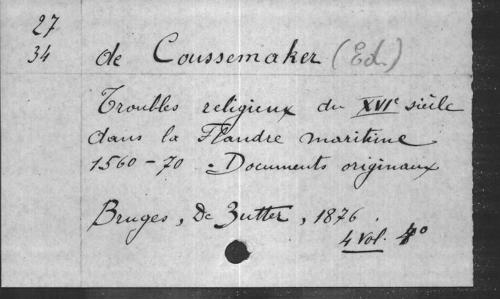 27
34
de Coussemaker (Ed.)
Troubles religieux du XVIe siècle
dans la Flandre maritime
1560-70. Documents originaux
Bruges, De Zutter, 1876.
4 vol. 4o